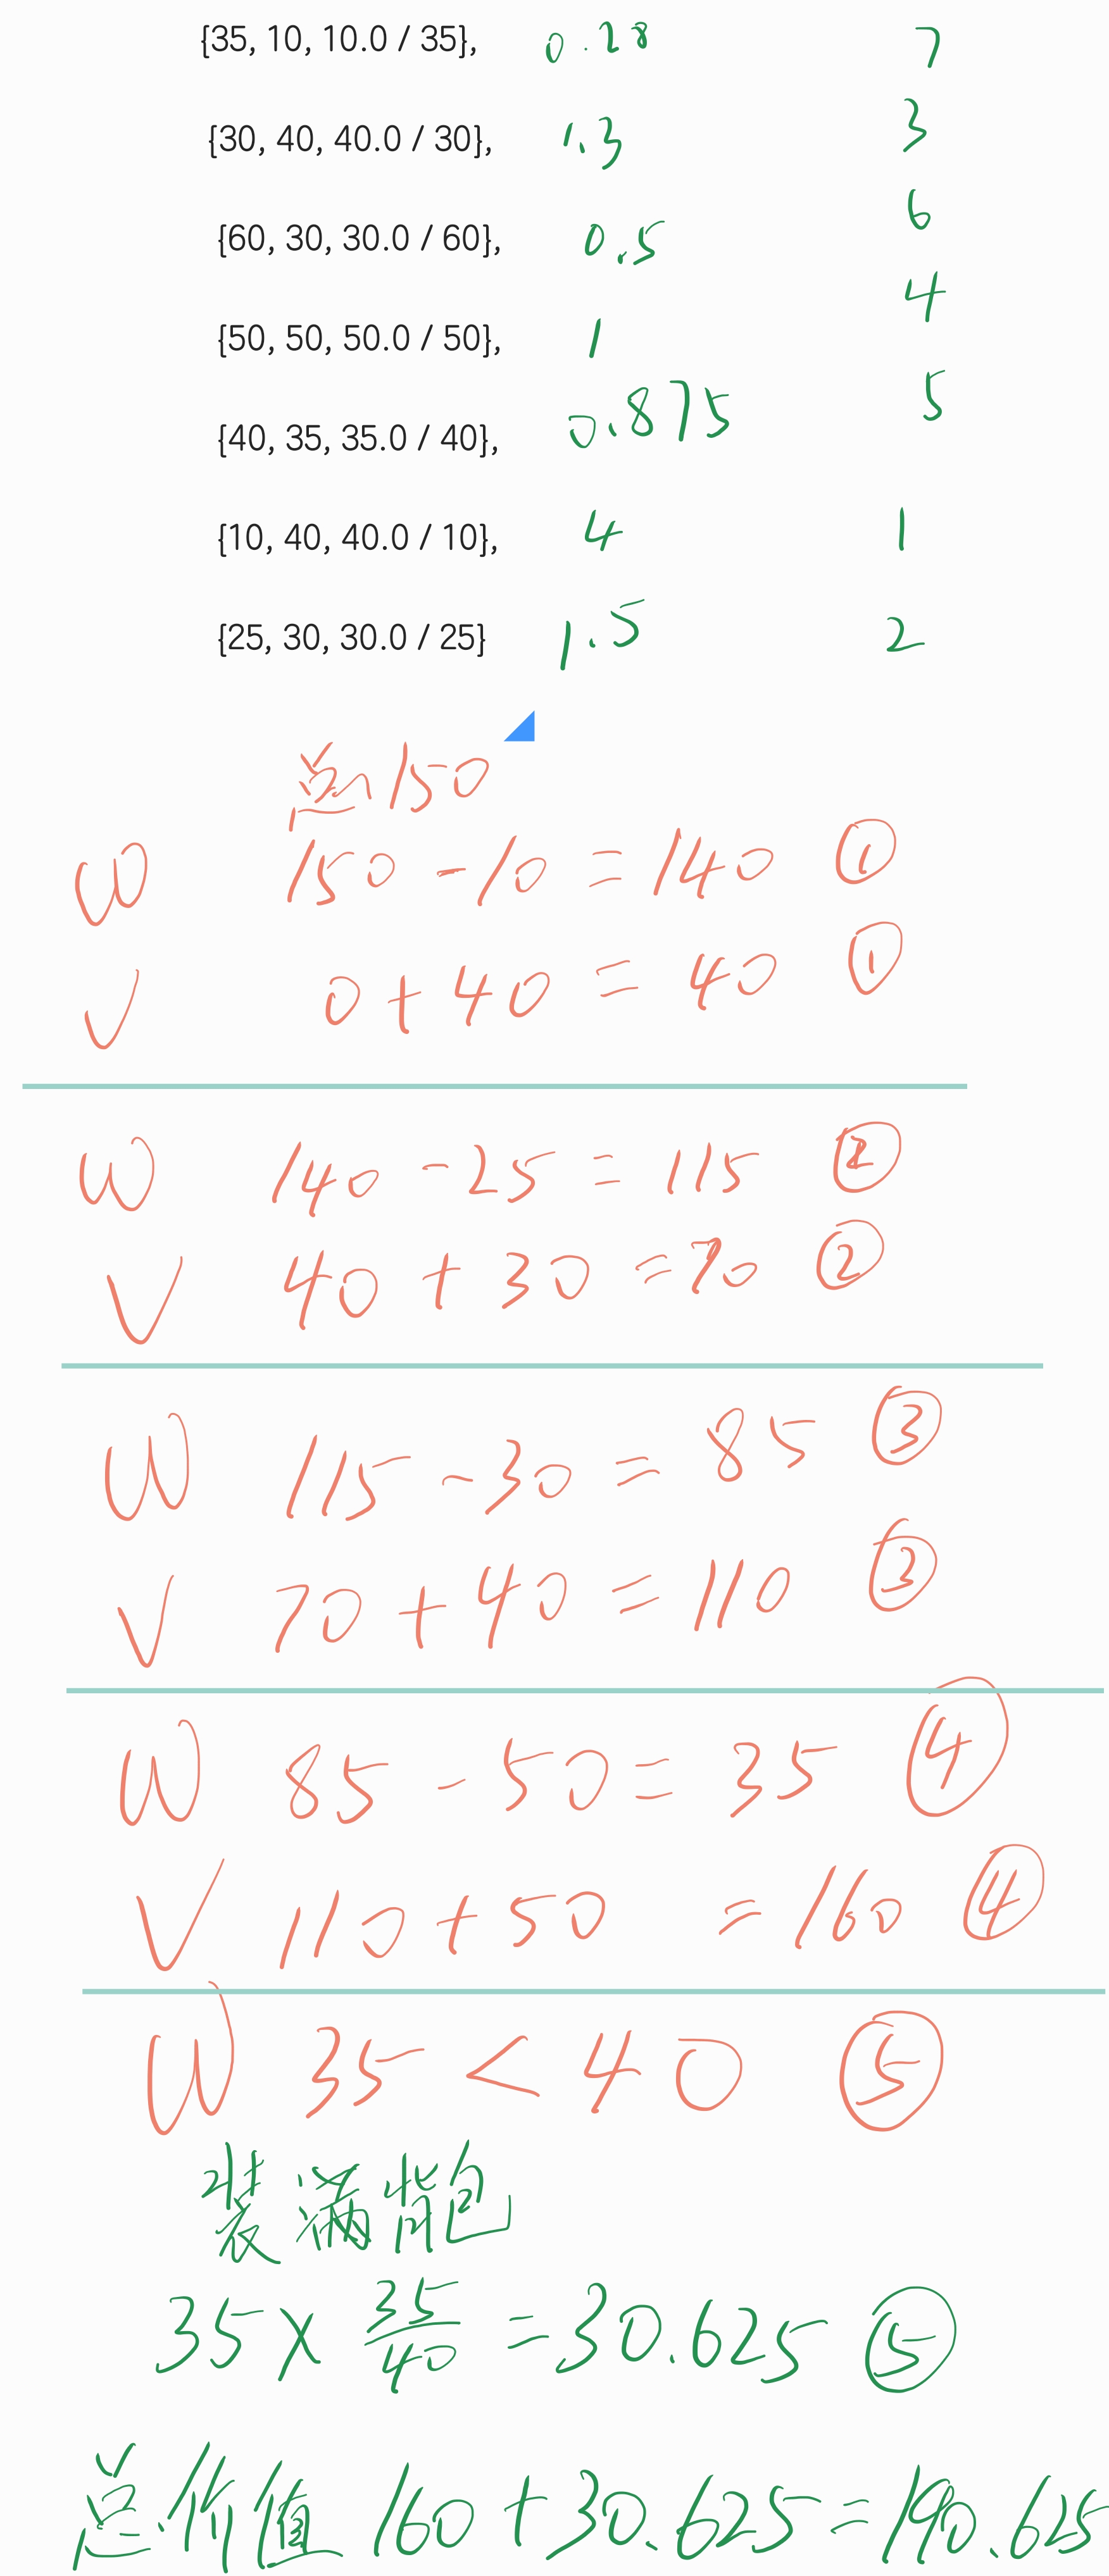 {35, 10, 10.0 / 35}, 0.28 7
{30, 40, 40.0 / 30}, 1.3 3
{60, 30, 30.0 / 60}, 0.5 6
{50, 50, 50.0 / 50}, 1 4
{40, 35, 35.0 / 40}, 0.875 5
{10, 40, 40.0 / 10}, 4 1
{25, 30, 30.0 / 25} 1.5 2
总150
W 150 - 10 = 140 ①
V 0 + 40 = 40 ①
W 140 - 25 = 115 ②
V 40 + 30 = 70 ②
W 115 - 30 = 85 ③
V 70 + 40 = 110 ③
W 85 - 50 = 35 ④
V 110 + 50 = 160 ④
W 35 < 40 ⑤
装满背包
35 × 35/40 = 30.625 ⑤
总价值 160 + 30.625 = 190.625